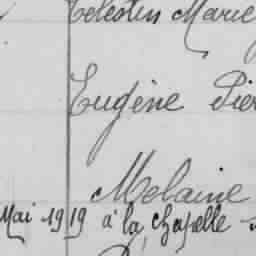 Célestin Marie
Eugène Pier
Melaine
Mai 1919 à la chapelle